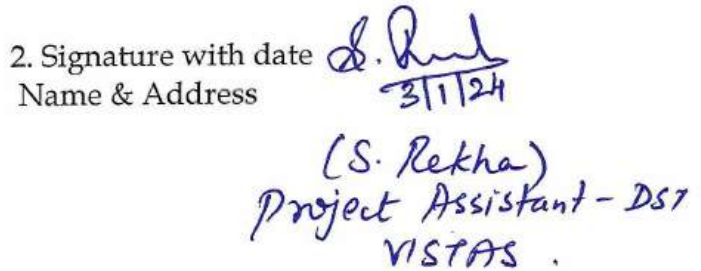 2. Signature with date S. Rekha
3/1/24
Name & Address
(S. Rekha)
Project Assistant - DST
VISTAS.